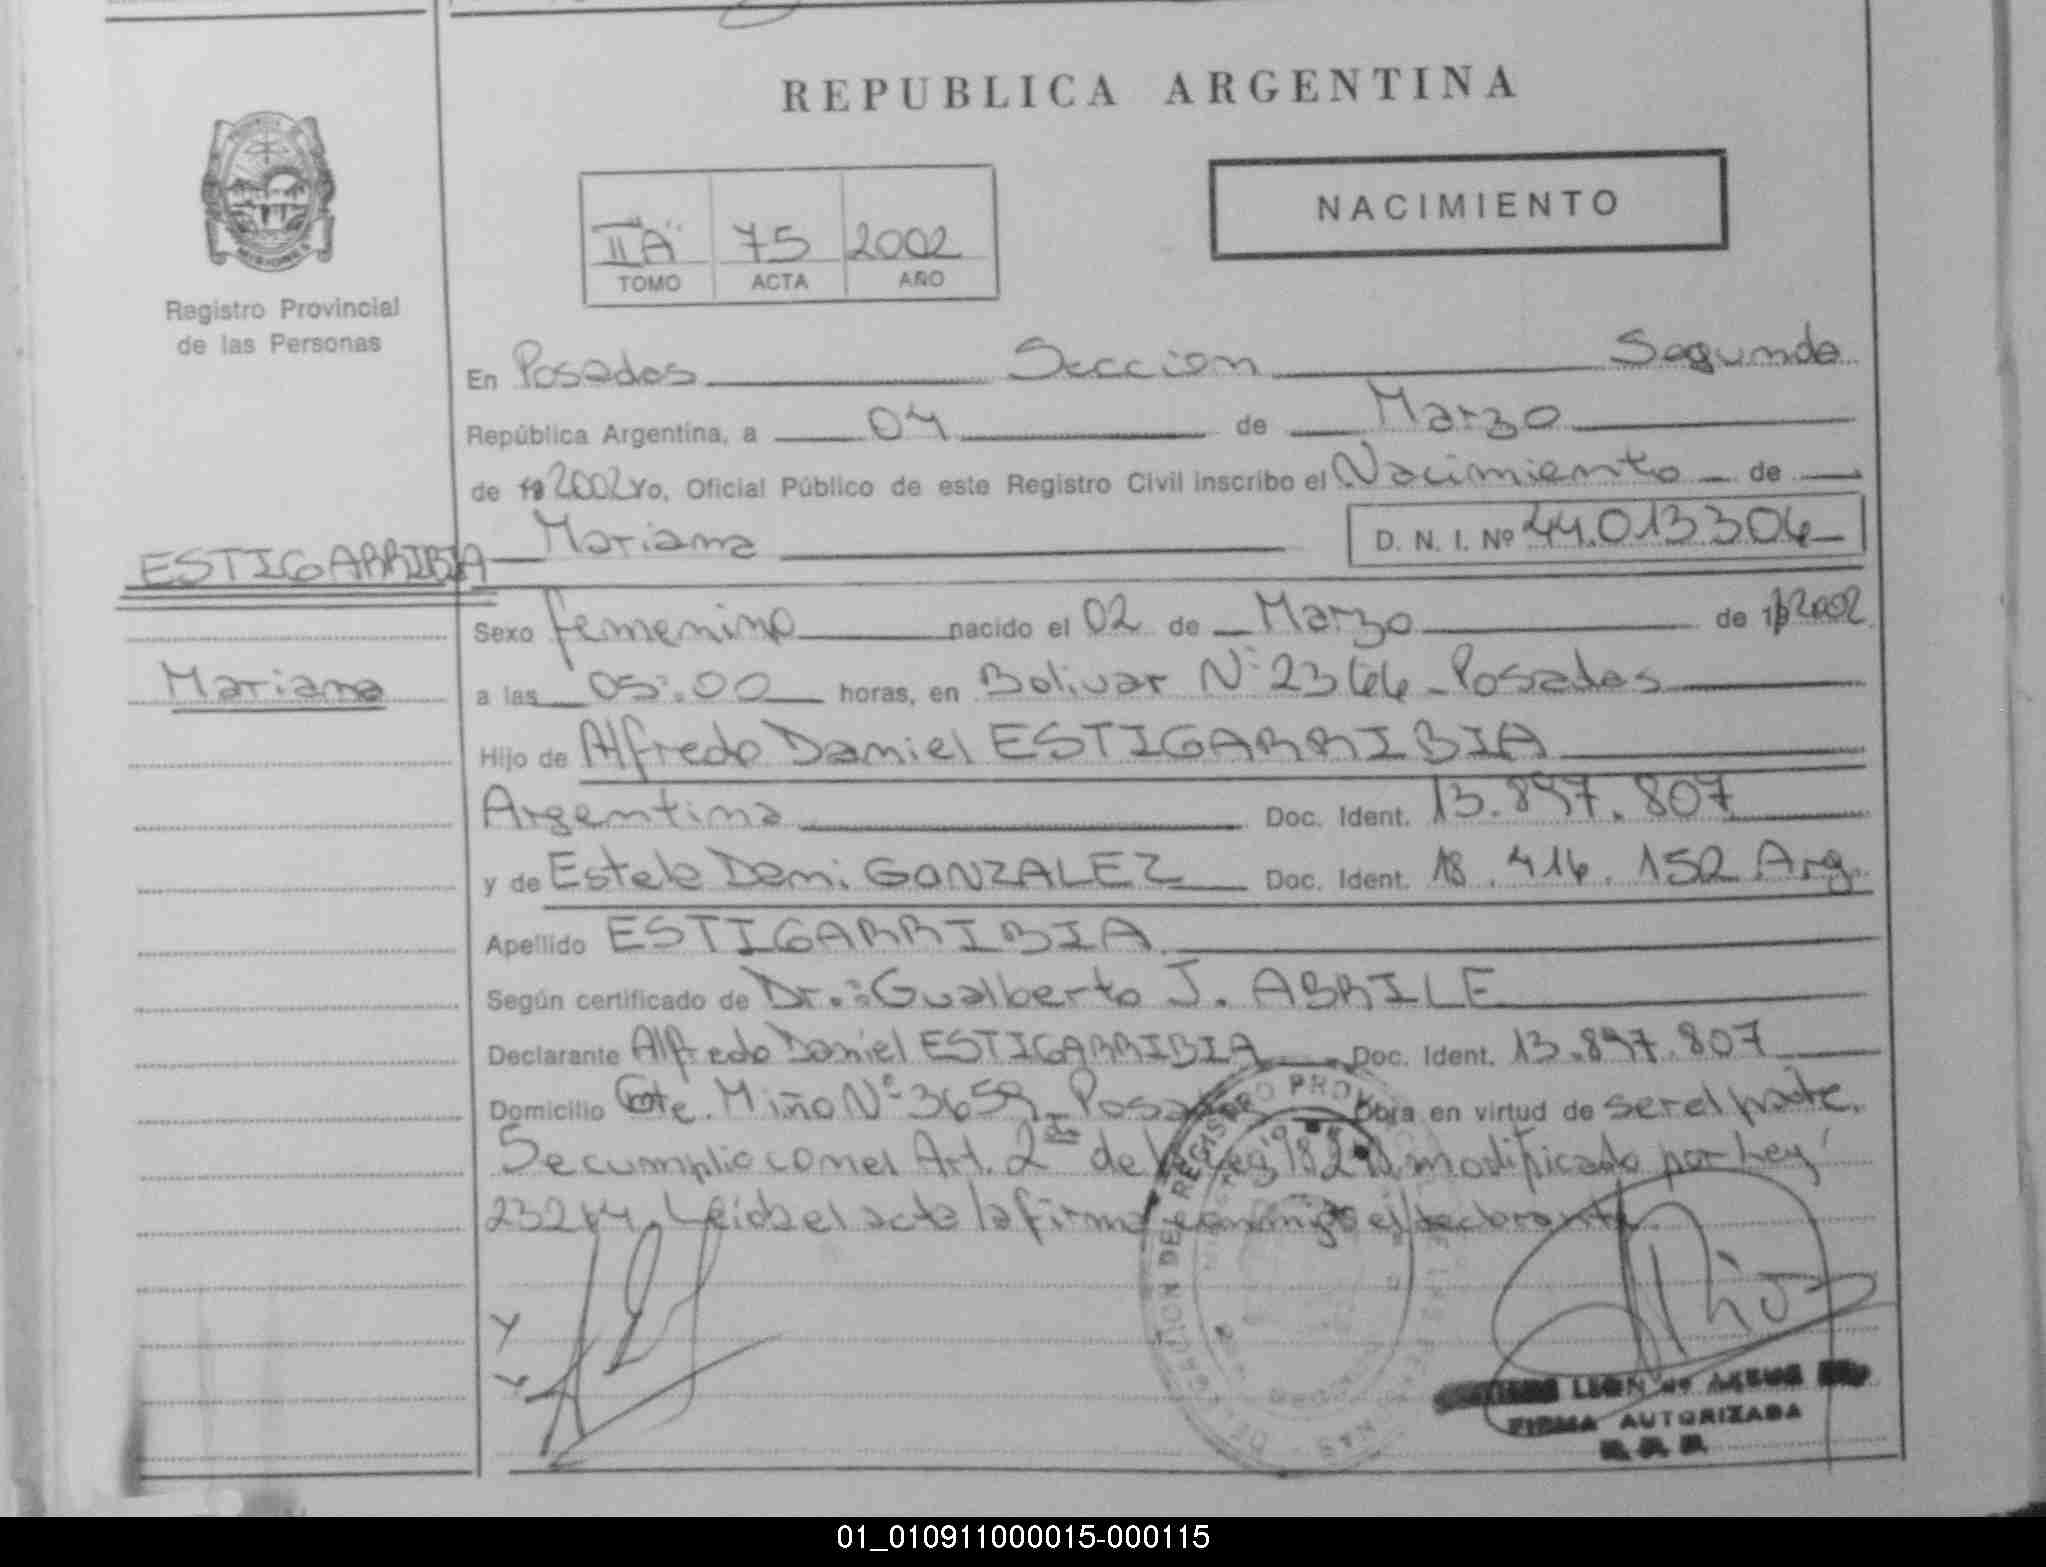 REPUBLICA ARGENTINA
NACIMIENTO
IIA" 75 2002
TOMO ACTA AÑO
Registro Provincial
de las Personas
En Posadas Seccion Segunda
República Argentina, a 04 de Marzo
de 19 2002 Yo, Oficial Público de este Registro Civil inscribo el Nacimiento de
ESTIGARRIBIA
Mariana D. N. I. Nº 44.013304
Sexo femenino nacido el 02 de Marzo de 19 2002
Mariana
a las 05:00 horas, en Bolivar Nº 2366 - Posadas
Hijo de Alfredo Daniel ESTIGARRIBIA
Argentina Doc. Ident. 13.897.807
y de Estela Demi GONZALEZ Doc. Ident. 18.416.152 Arg.
Apellido ESTIGARRIBIA
Según certificado de Dr.: Gualberto J. ABRILE
Declarante Alfredo Daniel ESTIGARRIBIA Doc. Ident. 13.897.807
Domicilio Cnte. Miño Nº 3659 Obra en virtud de ser el padre.
Se cumplio con el Art. 2 de modificado por Ley
Leida el acta la firma conmigo el declarante
FIRMA AUTORIZADA
01_010911000015-000115